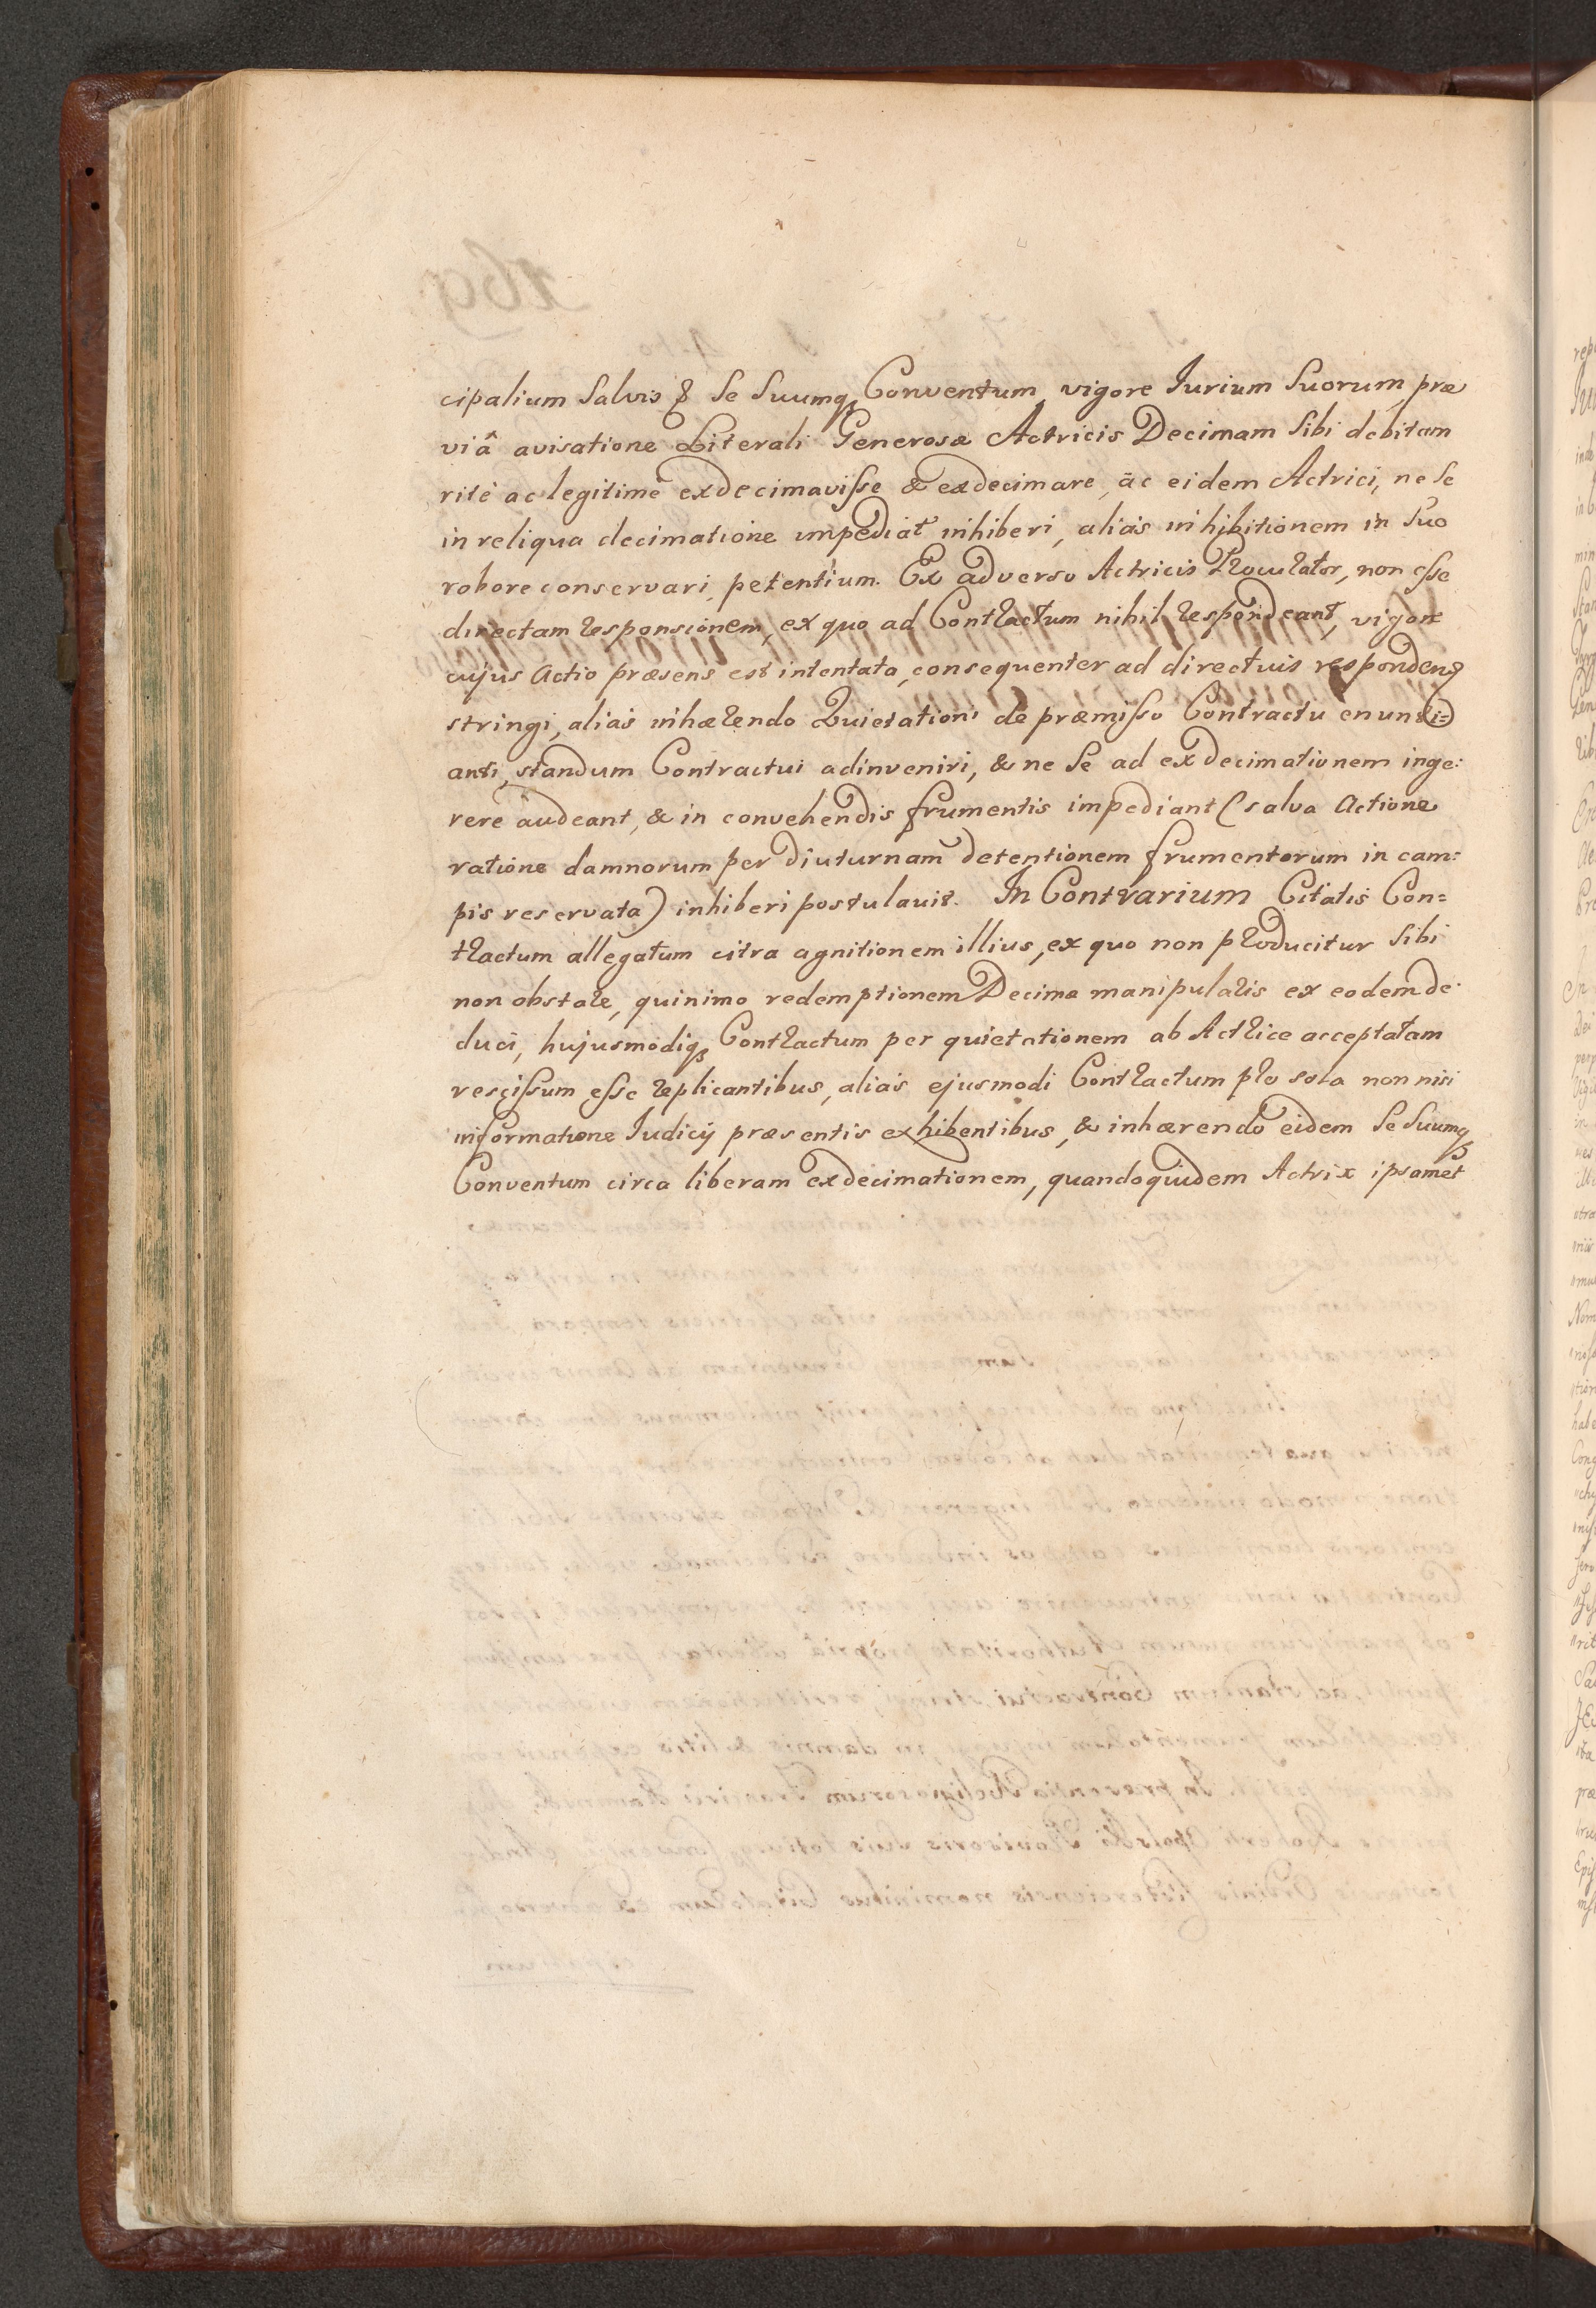 cipalium Salvis & Se Suumq₃ Conventum, vigore Iurium Suorum, præ
viâ avisatione Literali Generosæ Actricis Decimam Sibi debitam
ritè ac legitimè exdecimavisse & exdecimare, ac eidem Actrici, ne Se
in reliqua decimatione impediat inhiberi, aliàs inhibitionem in Suo
robore conservari, petentium. Ex adverso Actricis Procurator, non esse
directam responsionem, ex quo ad Contractum nihil respondeant, vigore
cujus Actio præsens est intentata, consequenter ad directius respondend
stringi, aliàs inhærendo Quietationi de præmisso Contractu enunti=
anti, standum Contractui adinveniri, & ne Se ad exdecimationem inge:
rere audeant, & in convehendis frumentis impediant (salva Actione
ratione damnorum per diuturnam detentionem frumentorum in cam:
pis reservata) inhiberi postulavit. In Contrarium Citatis Con=
tractum allegatum citra agnitionem illius, ex quo non producitur Sibi
non obstare, quinimo redemptionem Decimæ manipularis ex eodem de:
duci, hujusmodiq₃ Contractum per quietationem ab Actrice acceptatam
rescissum esse replicantibus, aliàs ejusmodi Contractum pro sola non nisi
informatione Iudicij præsentis exhibentibus, & inhærendo eidem Se Suumq₃
Conventum circa liberam exdecimationem, quandoquidem Actrix ipsamet